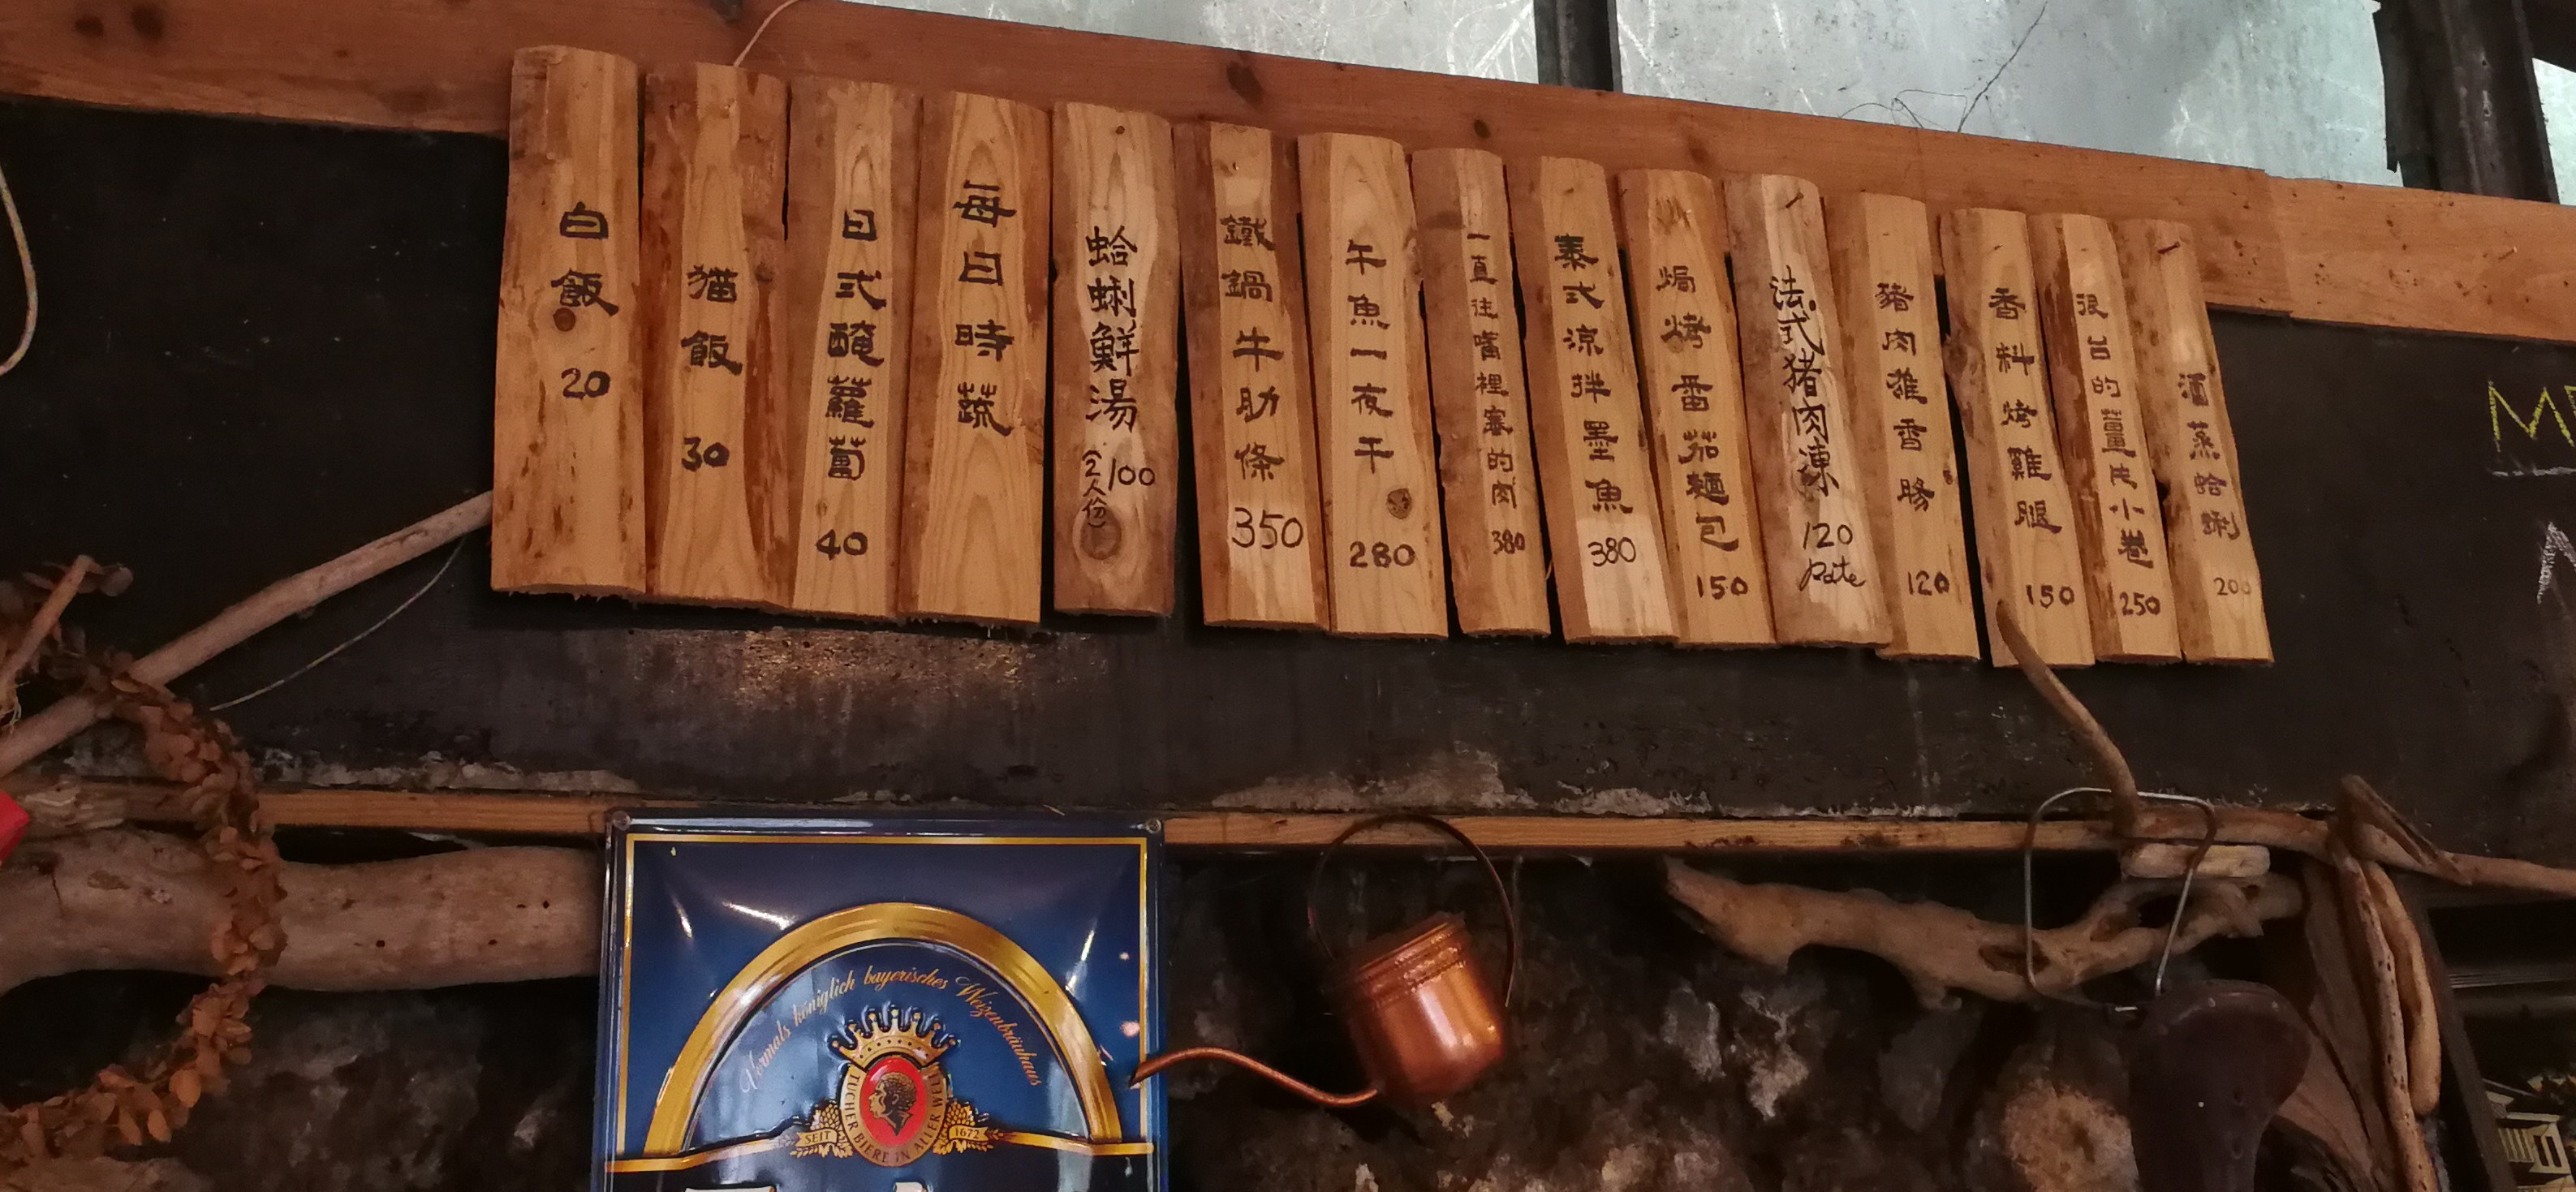 白飯 20
猫飯 30
日式醃蘿蔔 40
每日時蔬
蛤蜊鮮湯 (2人份) 100
鐵鍋牛肋條 350
午魚一夜干 280
一直往嘴裡塞的肉 380
泰式涼拌墨魚 380
焗烤番茄麵包 150
法式猪肉凍 120 Pate
豬肉雞香腸 120
香料烤雞腿 150
很台的薑絲小卷 250
酒蒸蛤蜊 200
Vormals königlich bayerisches Weizenbräuhaus
TUCHER BIERE IN ALLER WELT
SEIT 1672